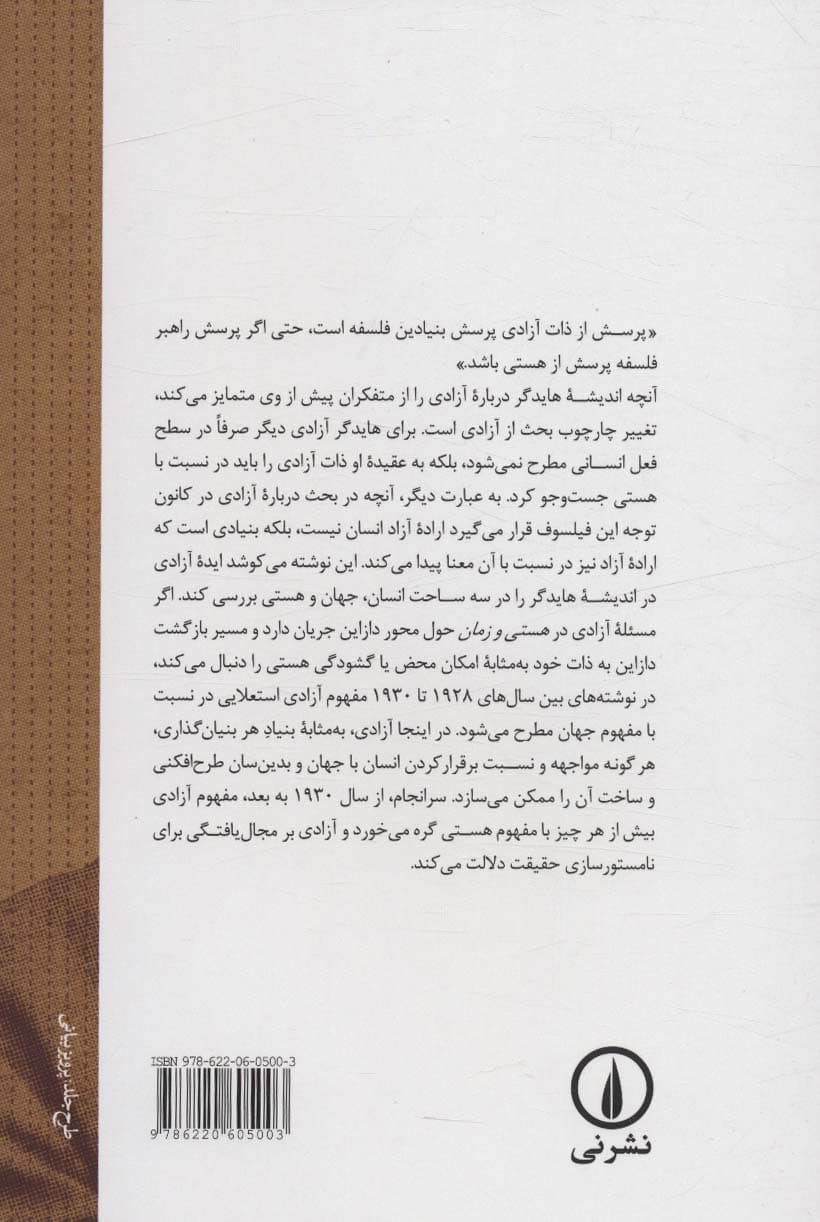 «پرسش از ذات آزادی پرسش بنیادین فلسفه است، حتی اگر پرسش راهبر
فلسفه پرسش از هستی باشد.»
آنچه اندیشهٔ هایدگر دربارهٔ آزادی را از متفکران پیش از وی متمایز می‌کند،
تغییر چارچوب بحث از آزادی است. برای هایدگر آزادی دیگر صرفاً در سطح
فعل انسانی مطرح نمی‌شود، بلکه به عقیدهٔ او ذات آزادی را باید در نسبت با
هستی جست‌وجو کرد. به عبارت دیگر، آنچه در بحث دربارهٔ آزادی در کانون
توجه این فیلسوف قرار می‌گیرد ارادهٔ آزاد انسان نیست، بلکه بنیادی است که
ارادهٔ آزاد نیز در نسبت با آن معنا پیدا می‌کند. این نوشته می‌کوشد ایدهٔ آزادی
در اندیشهٔ هایدگر را در سه ساحت انسان، جهان و هستی بررسی کند. اگر
مسئلهٔ آزادی در هستی و زمان حول محور دازاین جریان دارد و مسیر بازگشت
دازاین به ذات خود به‌مثابهٔ امکان محض یا گشودگی هستی را دنبال می‌کند،
در نوشته‌های بین سال‌های ۱۹۲۸ تا ۱۹۳۰ مفهوم آزادی استعلایی در نسبت
با مفهوم جهان مطرح می‌شود. در اینجا آزادی، به‌مثابهٔ بنیادِ هر بنیان‌گذاری،
هر گونه مواجهه و نسبت برقرارکردن انسان با جهان و بدین‌سان طرح‌افکنی
و ساخت آن را ممکن می‌سازد. سرانجام، از سال ۱۹۳۰ به بعد، مفهوم آزادی
بیش از هر چیز با مفهوم هستی گره می‌خورد و آزادی بر مجال‌یافتگی برای
نامستورسازی حقیقت دلالت می‌کند.
طرح جلد: پرویز بیانی
ISBN 978-622-06-0500-3
9 786220 605003
نشرنی